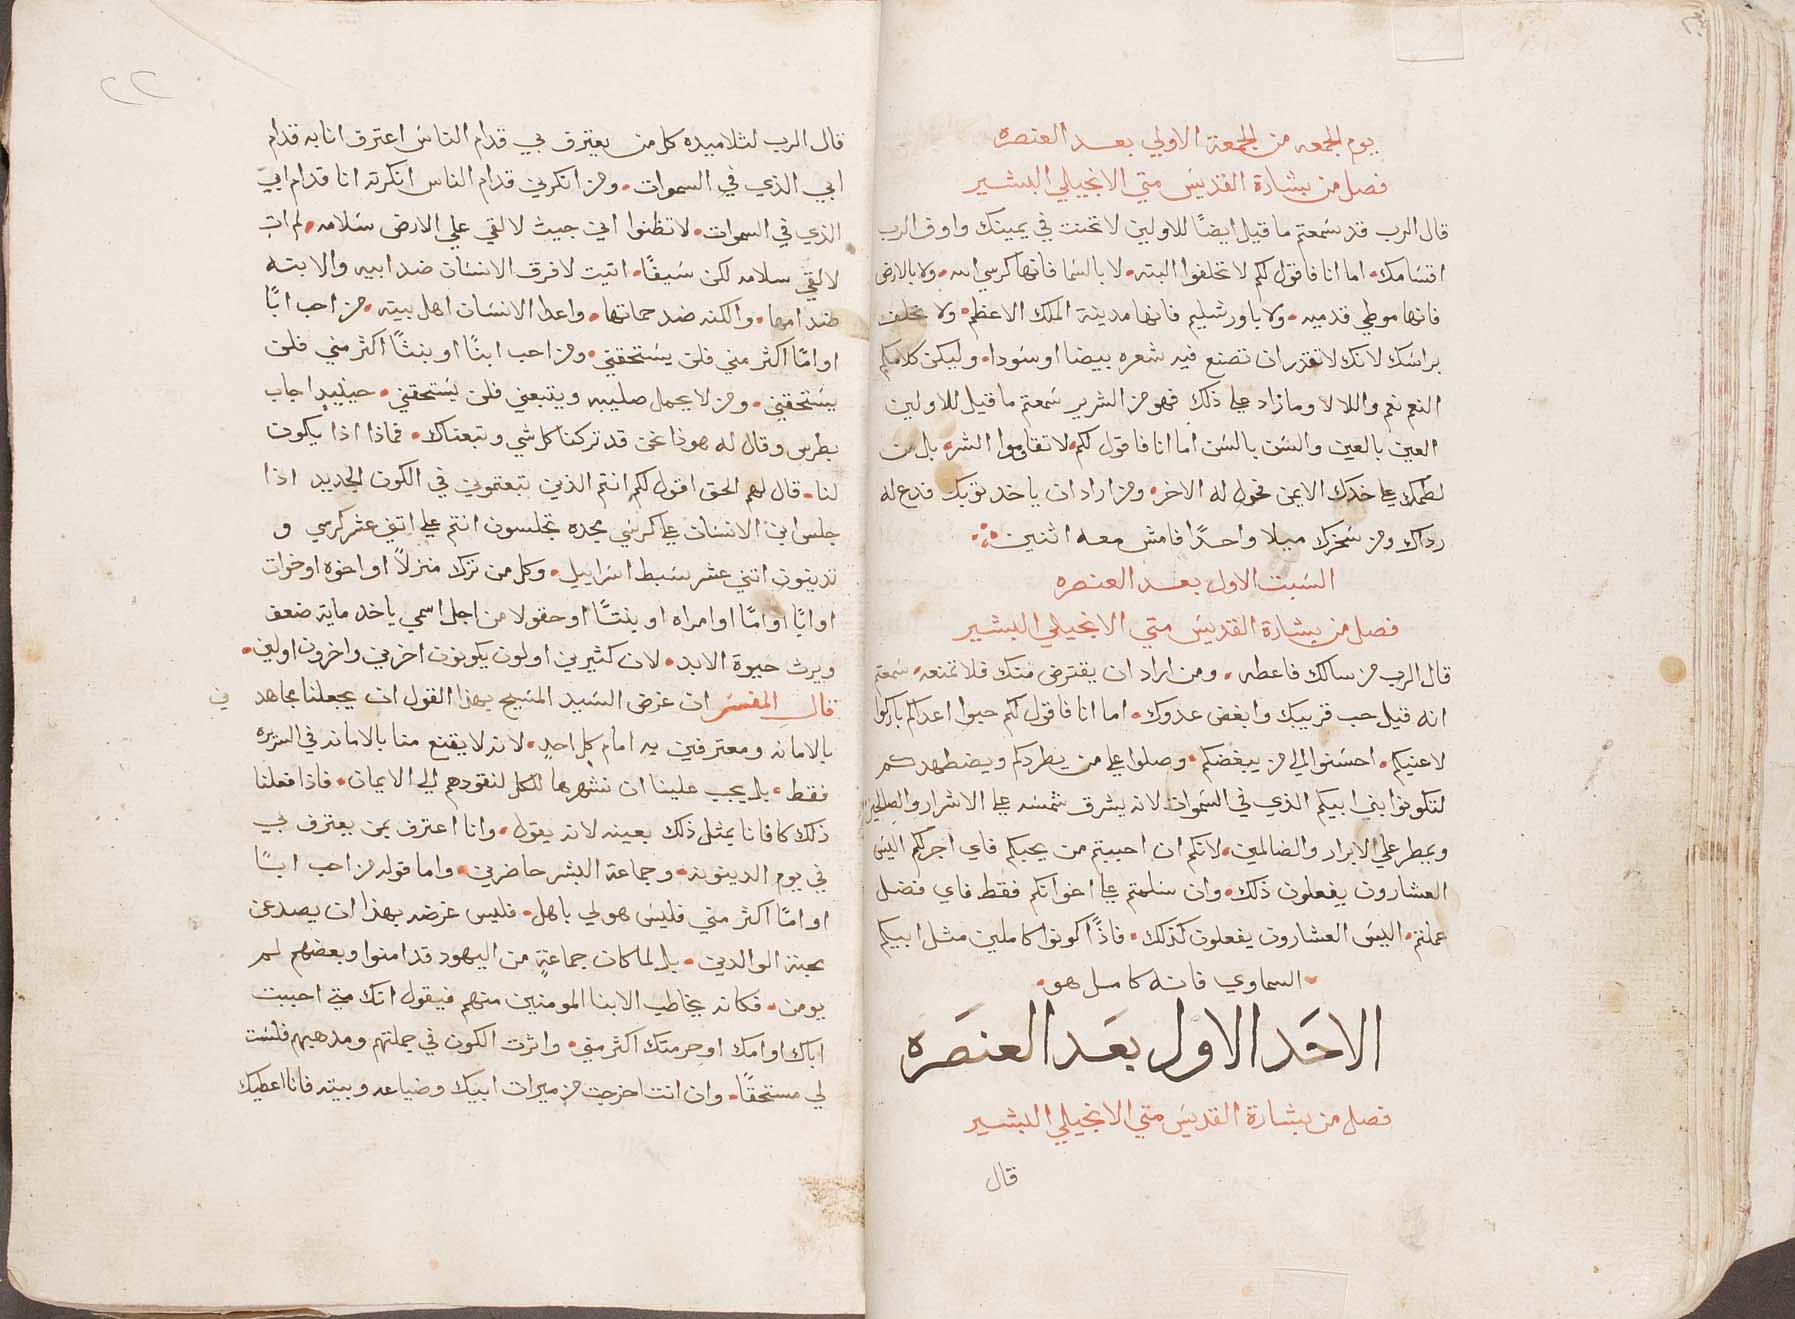 يوم الجمعه من الجمعة الاولي بعد العنصره
فصل من بشارة القديس متي الانجيلي البشير
قال الرب قد سمعتم ما قيل ايضًا للاولين لا تحنث في يمينك واوف الرب
اقسامك. اما انا فاقول لكم لا تحلفوا البته. لا بالسما فانها كرسي الله. ولا بالارض
فانها موطي قدميه. ولا باورشليم فانها مدينة الملك الاعظم. ولا تحلف
براسك لانك لا تقدر ان تصنع فيه شعره بيضا او سودا. وليكن كلامكم
النعم نعم واللا لا وما زاد علي ذلك فهو من الشرير سمعتم ما قيل للاولين
العين بالعين والسن بالسن اما انا فاقول لكم. لا تقاوموا الشر. بل من
لطمك علي خدك الايمن فحول له الاخر. ومن اراد ان ياخد توبك فدع له
رداك ومن سخرك ميلا واحدًا فامش معه اثنين
السبت الاول بعد العنصره
فصل من بشارة القديس متي الانجيلي البشير
قال الرب من سالك فاعطه. ومن اراد ان يقترض منك فلا تمنعه. سمعتم
انه قيل حب قريبك وابغض عدوك. اما انا فاقول لكم حبوا اعداكم باركوا
لاعنيكم. احسنوا الي من يبغضكم. وصلوا علي من يطردكم ويضطهدكم
لتكونوا بني ابيكم الذي في السموات لانه يشرق شمسه علي الاشرار والصالحين
ويمطر علي الابرار والضالمين. لانكم ان احببتم من يحبكم فاي اجر لكم اليس
العشارون يفعلون ذلك. وان سلمتم علي اخوانكم فقط فاي فضل
عملتم. اليس العشارون يفعلون كذلك. فاذًا كونوا كاملين مثل ابيكم
السماوي فانه كامل هو.
الاحد الاول بعد العنصره
فصل من بشارة القديس متي الانجيلي البشير
قال
٢٢
قال الرب لتلاميده كل من يعترف بي قدام الناس اعترف انا به قدام
ابي الذي في السموات. ومن انكرني قدام الناس انكرته انا قدام ابي
الذي في السموات. لا تظنوا اني جيت لالقي علي الارض سلامه. لم ات
لالقي سلامه لكن سيفًا. اتيت لافرق الانسان ضد ابيه والابنه
ضد امها. والكنه ضد حماتها. واعدا الانسان اهل بيته. من احب ابًا
او امًا اكثر مني فلن يستحقني. ومن احب ابنًا او بنتًا اكثر مني فلن
يستحقني. ومن لا يحمل صليبه ويتبعني فلن يستحقني. حينيدٍ اجاب
بطرس وقال له هوذا نحن قد تركنا كل شي وتبعناك. فماذا اذا يكون
لنا. قال لهم الحق اقول لكم انتم الذين تبعتموني في الكون الجديد اذا
جلس ابن الانسان علي كرسي مجده تجلسون انتم علي اتني عشر كرسي و
تدينون اتني عشر سبط اسراييل. وكل من ترك منزلاً او اخوه او خوات
او ابًا او امًا او امراه او بنتًا او حقولا من اجل اسمي ياخد مايه ضعف
ويرث حيوة الابد. لان كثيرين اولون يكونون اخرين واخرون اولين.
قال المفسر ان غرض السيد المسيح بهذا القول ان يجعلنا مجاهد ين
بالامانه ومعترفين به امام كل احدٍ. لانه لا يقنع منا بالامانه في السريره
فقط. بل يجب علينا ان نشهرها للكل لنقودهم الي الايمان. فاذا فعلنا
ذلك كافانا بمثل ذلك بعينه لانه يقول. وانا اعترف بمن يعترف بي
في يوم الدينونه. وجماعة البشر حاضرين. واما قوله من احب ابًا
او امًا اكثر مني فليس هو لي باهل. فليس غرضه بهذا ان يصد عن
محبة الوالدين. بل لما كان جماعةٍ من اليهود قد امنوا وبعضهم لم
يومن. فكانه يخاطب الابنا المومنين منهم فيقول انك متي احببت
اباك او امك او حرمتك اكثر مني. واثرت الكون في جملتهم ومدهبهم فلست
لي مستحقًا. وان انت اخرجت من ميراث ابيك وضياعه وبيته فانا اعطيك